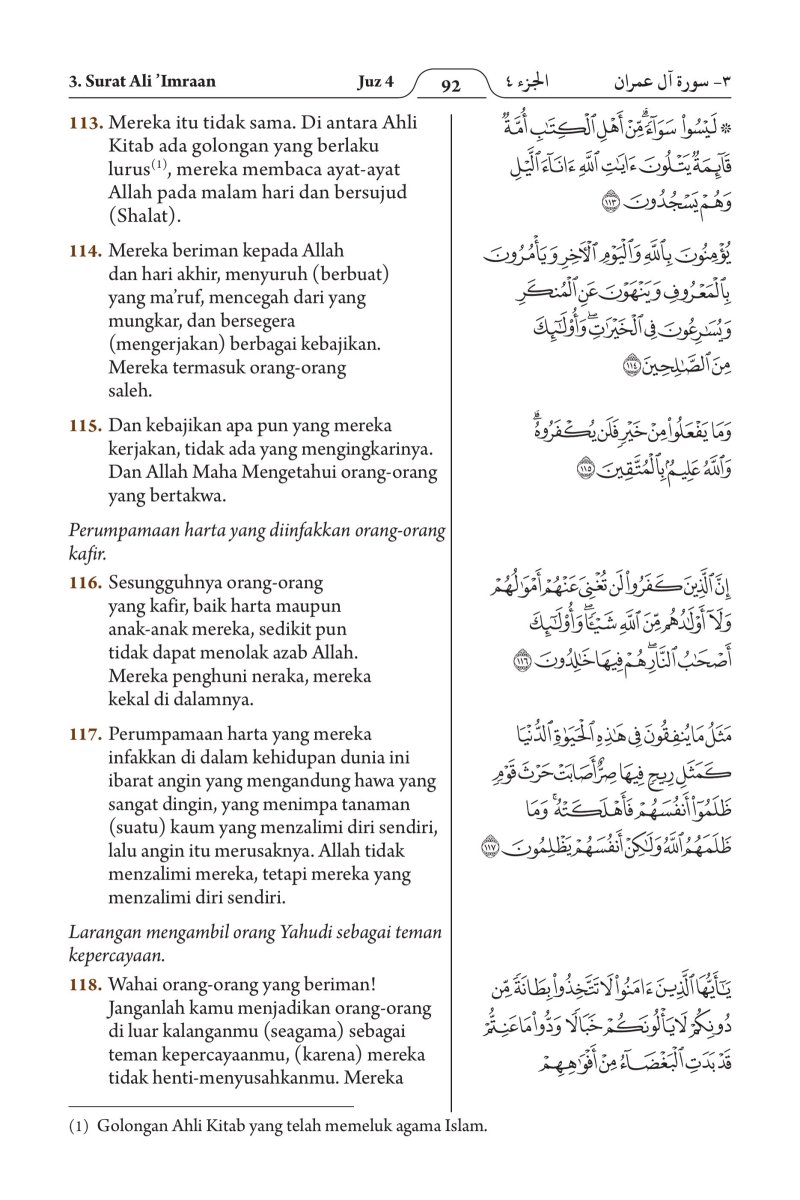 3. Surat Ali ’Imraan Juz 4 92 الجزء ٤ ٣- سورة آل عمران
113. Mereka itu tidak sama. Di antara Ahli
Kitab ada golongan yang berlaku
lurus(1), mereka membaca ayat-ayat
Allah pada malam hari dan bersujud
(Shalat).
114. Mereka beriman kepada Allah
dan hari akhir, menyuruh (berbuat)
yang ma’ruf, mencegah dari yang
mungkar, dan bersegera
(mengerjakan) berbagai kebajikan.
Mereka termasuk orang-orang
saleh.
115. Dan kebajikan apa pun yang mereka
kerjakan, tidak ada yang mengingkarinya.
Dan Allah Maha Mengetahui orang-orang
yang bertakwa.
Perumpamaan harta yang diinfakkan orang-orang
kafir.
116. Sesungguhnya orang-orang
yang kafir, baik harta maupun
anak-anak mereka, sedikit pun
tidak dapat menolak azab Allah.
Mereka penghuni neraka, mereka
kekal di dalamnya.
117. Perumpamaan harta yang mereka
infakkan di dalam kehidupan dunia ini
ibarat angin yang mengandung hawa yang
sangat dingin, yang menimpa tanaman
(suatu) kaum yang menzalimi diri sendiri,
lalu angin itu merusaknya. Allah tidak
menzalimi mereka, tetapi mereka yang
menzalimi diri sendiri.
Larangan mengambil orang Yahudi sebagai teman
kepercayaan.
118. Wahai orang-orang yang beriman!
Janganlah kamu menjadikan orang-orang
di luar kalanganmu (seagama) sebagai
teman kepercayaanmu, (karena) mereka
tidak henti-menyusahkanmu. Mereka
۞ لَيْسُوا۟ سَوَآءً ۗ مِّنْ أَهْلِ ٱلْكِتَٰبِ أُمَّةٌ
قَآئِمَةٌ يَتْلُونَ ءَايَٰتِ ٱللَّهِ ءَانَآءَ ٱلَّيْلِ
وَهُمْ يَسْجُدُونَ ١١٣
يُؤْمِنُونَ بِٱللَّهِ وَٱلْيَوْمِ ٱلْءَاخِرِ وَيَأْمُرُونَ
بِٱلْمَعْرُوفِ وَيَنْهَوْنَ عَنِ ٱلْمُنكَرِ
وَيُسَٰرِعُونَ فِى ٱلْخَيْرَٰتِ ۖ وَأُو۟لَٰٓئِكَ
مِنَ ٱلصَّٰلِحِينَ ١١٤
وَمَا يَفْعَلُوا۟ مِنْ خَيْرٍ فَلَن يُكْفَرُوهُ ۗ
وَٱللَّهُ عَلِيمٌۢ بِٱلْمُتَّقِينَ ١١٥
إِنَّ ٱلَّذِينَ كَفَرُوا۟ لَن تُغْنِىَ عَنْهُمْ أَمْوَٰلُهُمْ
وَلَآ أَوْلَٰدُهُم مِّنَ ٱللَّهِ شَيْـًٔا ۖ وَأُو۟لَٰٓئِكَ
أَصْحَٰبُ ٱلنَّارِ ۚ هُمْ فِيهَا خَٰلِدُونَ ١١٦
مَثَلُ مَا يُنفِقُونَ فِى هَٰذِهِ ٱلْحَيَوٰةِ ٱلدُّنْيَا
كَمَثَلِ رِيحٍ فِيهَا صِرٌّ أَصَابَتْ حَرْثَ قَوْمٍ
ظَلَمُوٓا۟ أَنفُسَهُمْ فَأَهْلَكَتْهُ ۚ وَمَا
ظَلَمَهُمُ ٱللَّهُ وَلَٰكِنْ أَنفُسَهُمْ يَظْلِمُونَ ١١٧
يَٰٓأَيُّهَا ٱلَّذِينَ ءَامَنُوا۟ لَا تَتَّخِذُوا۟ بِطَانَةً مِّن
دُونِكُمْ لَا يَأْلُونَكُمْ خَبَالًا وَدُّوا۟ مَا عَنِتُّمْ
قَدْ بَدَتِ ٱلْبَغْضَآءُ مِنْ أَفْوَٰهِهِمْ
(1) Golongan Ahli Kitab yang telah memeluk agama Islam.